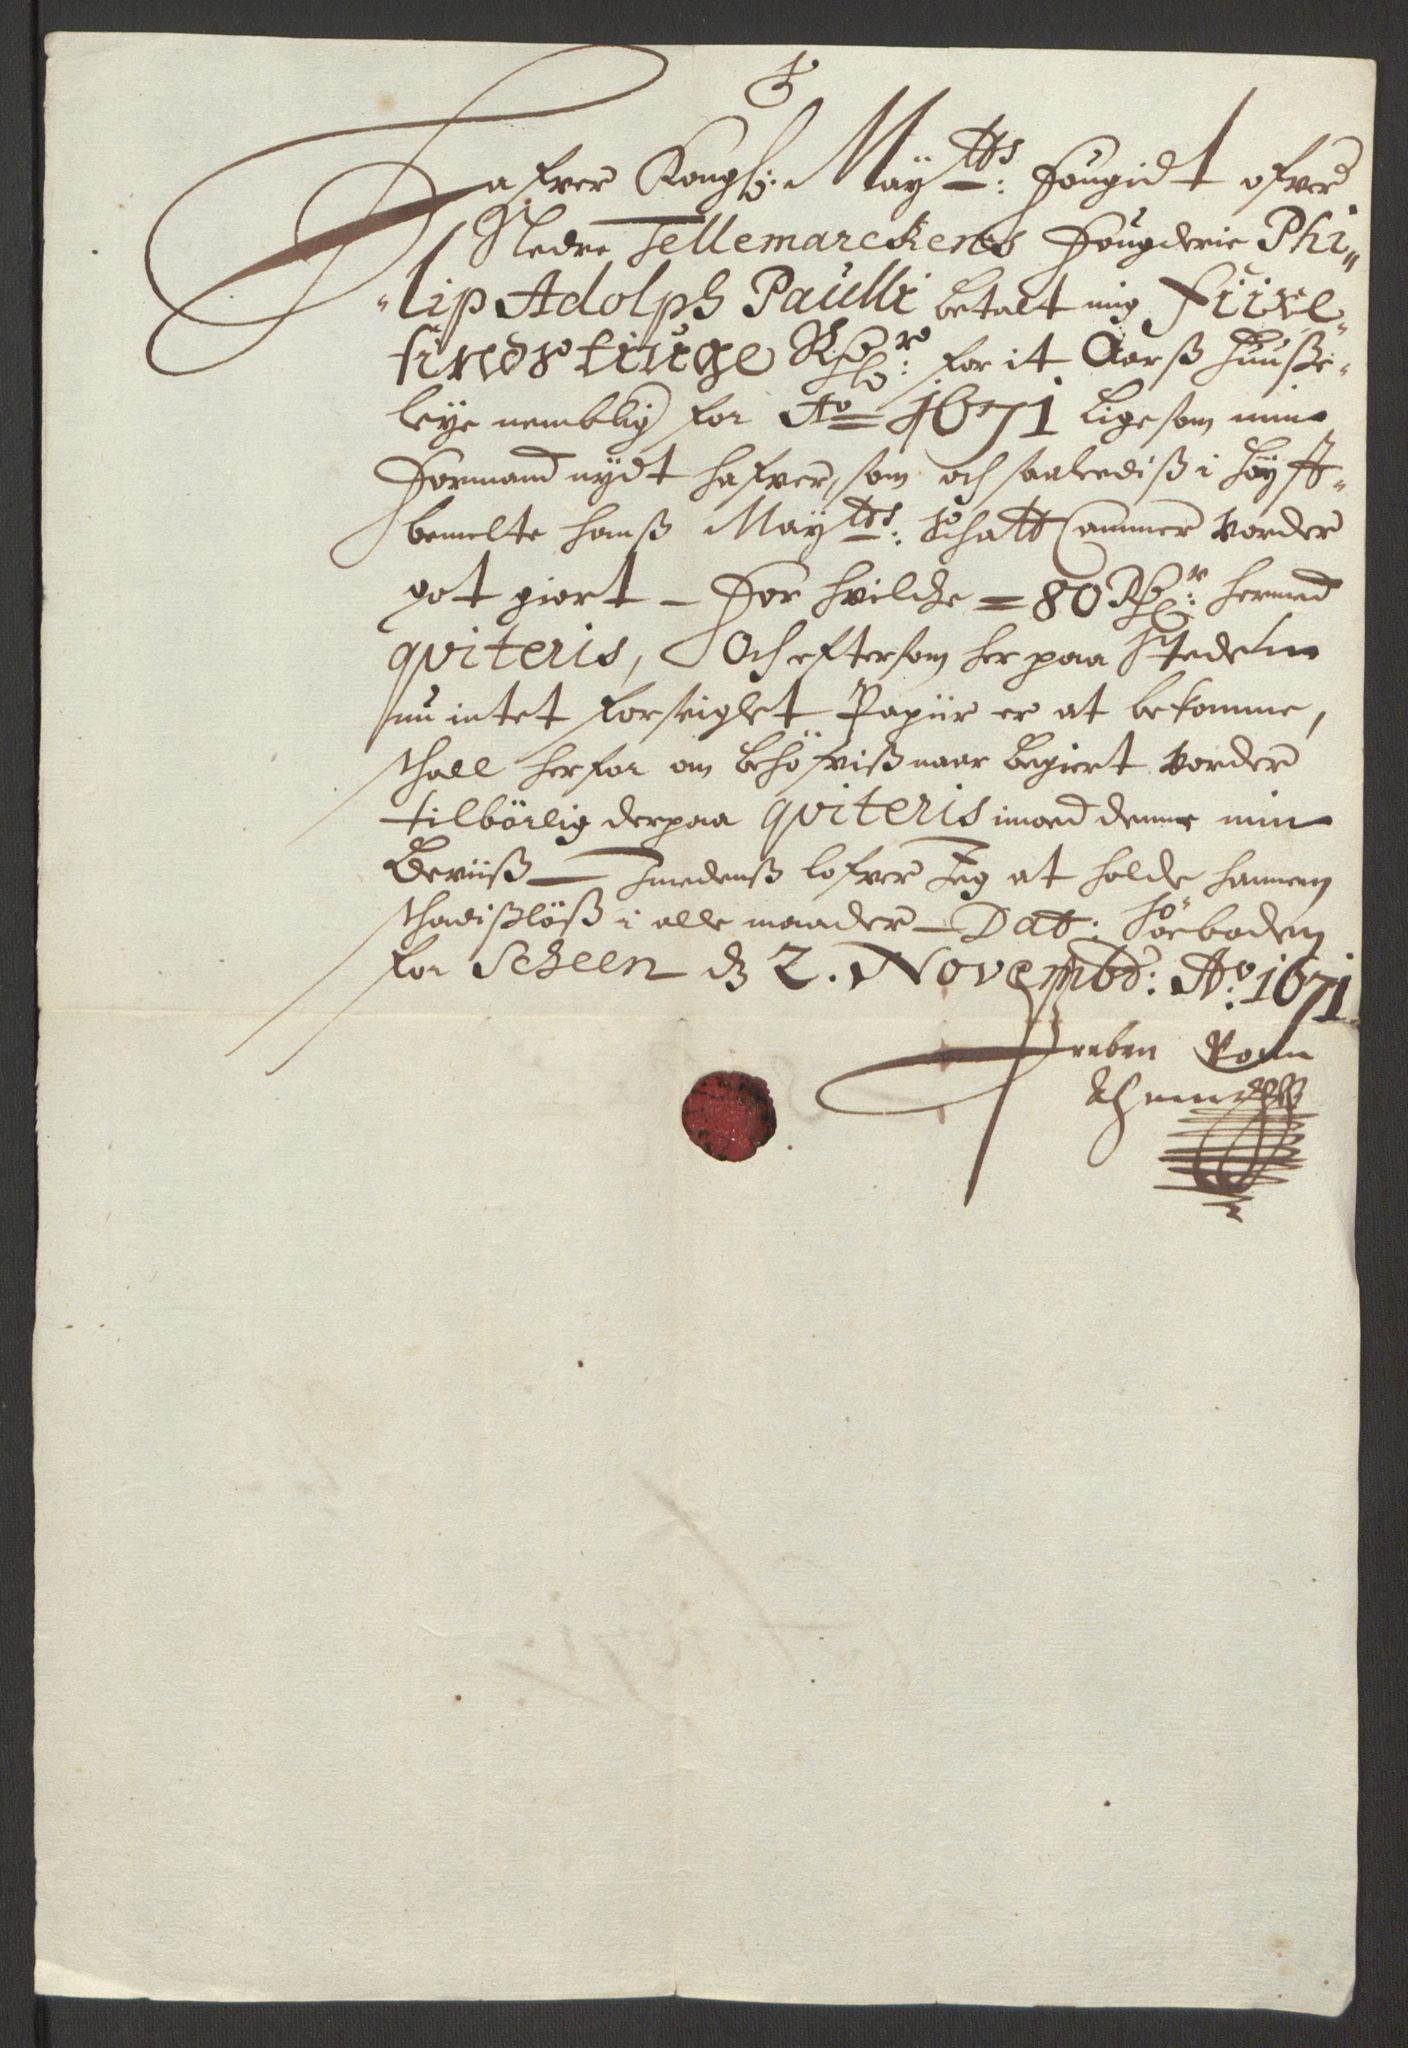 Hafver Kongl: Maytts: Fougidt ofver
Nedre Tellemarckens Fougderie Phi-
-lip Adolph Paulli betalt mig Fiire-
sindstiuge Rixdlr: for it Aars Huusse-
leye nemblig for Ao 1671 Ligesom min
Formand nydt hafver, som och saaledis i høyst-
bemelte hans Maytts: Schatt Cammer vorder
got giort – For hvilche = 80 Rdr: hermed
qviteris, Och eftersom her paa Steden
nu intet forseiglet Papiir er at bekomme,
schall herfor om behøfvis naar begiert vorder
tilbørlig derpaa qviteris imod denne min
Beviis – Imedens lofver Jeg at holde hannem
schadisløs i alle maader – Dat:
for Scheen d 2. Novembr: Ao: 1671
Preben Von
Ahnen